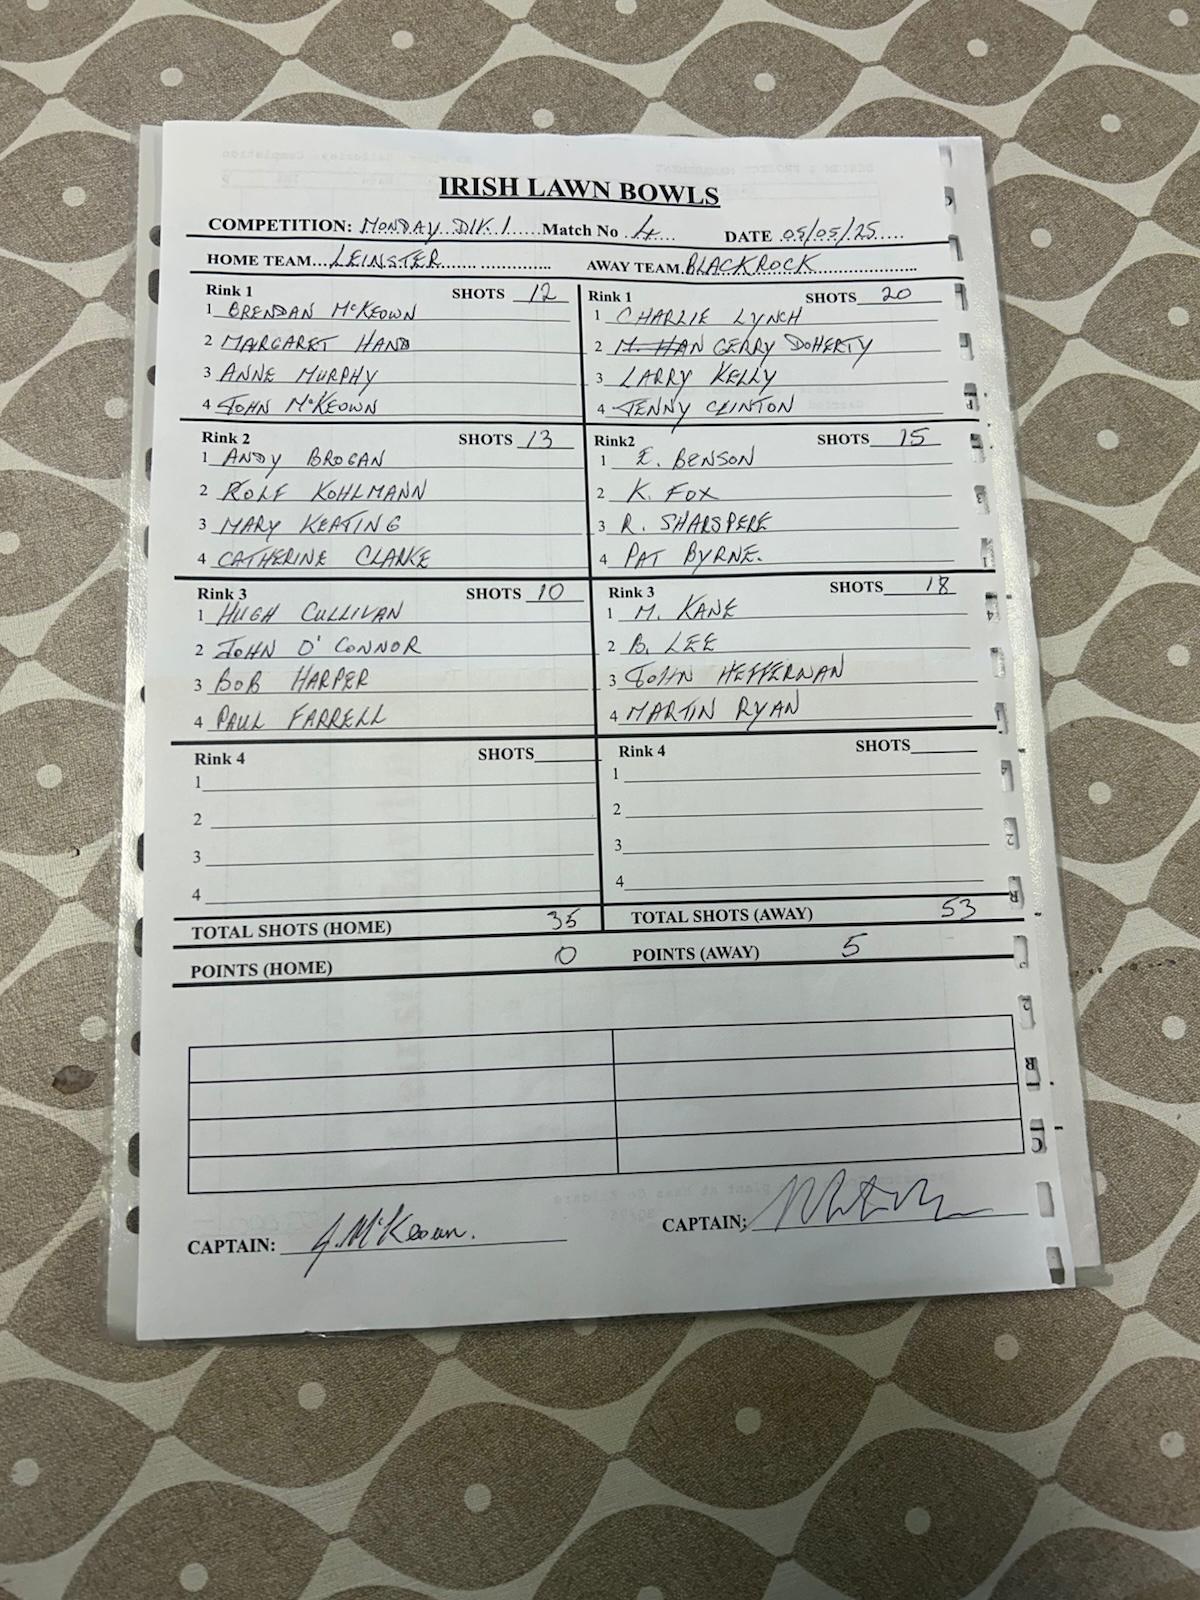 IRISH LAWN BOWLS
COMPETITION: MONDAY DIV. 1 Match No 4 DATE 05/05/25
HOME TEAM LEINSTER AWAY TEAM BLACKROCK
Rink 1 SHOTS 12
1 BRENDAN McKEOWN
2 MARGARET HAND
3 ANNE MURPHY
4 JOHN McKEOWN
Rink 1 SHOTS 20
1 CHARLIE LYNCH
2 M. HAN GERRY DOHERTY
3 LARRY KELLY
4 JENNY CLINTON
Rink 2 SHOTS 13
1 ANDY BROGAN
2 ROLF KOHLMANN
3 MARY KEATING
4 CATHERINE CLARKE
Rink2 SHOTS 15
1 E. BENSON
2 K. FOX
3 R. SHARSPERE
4 PAT BYRNE.
Rink 3 SHOTS 10
1 HUGH CULLIVAN
2 JOHN O'CONNOR
3 BOB HARPER
4 PAUL FARRELL
Rink 3 SHOTS 18
1 M. KANE
2 B. LEE
3 JOHN HEFFERNAN
4 MARTIN RYAN
Rink 4 SHOTS
1
2
3
4
Rink 4 SHOTS
1
2
3
4
TOTAL SHOTS (HOME) 35 TOTAL SHOTS (AWAY) 53
POINTS (HOME) 0 POINTS (AWAY) 5
CAPTAIN: J. McKeown.
CAPTAIN: